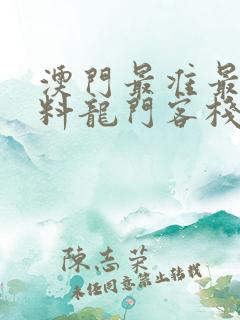 澳門最准最
料龍門客棧
陳志荣
未经同意禁止转载